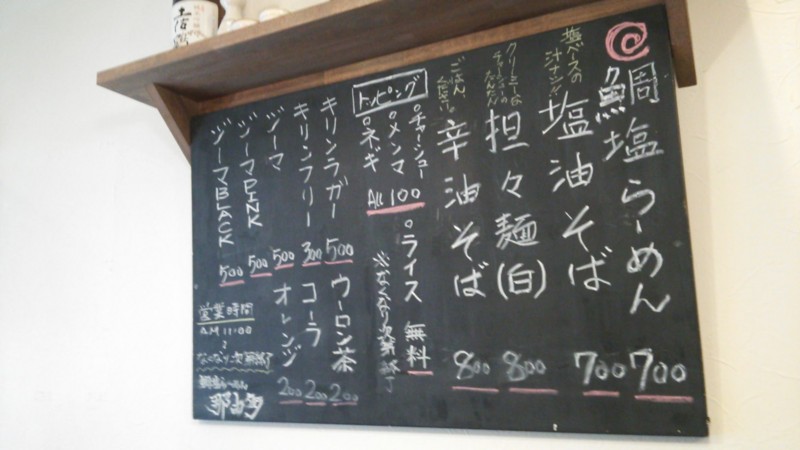 @鯛塩らーめん 700
塩ベースの
汁ナシ
塩油そば 700
クリーミーな
担々麺(白) 800
ごはん、
辛油そば 800
トッピング
○チャーシュー
○メンマ
○ネギ
All 100
○ライス 無料
※なくなり次第終了
キリンラガー 500
キリンフリー 300
ゾーマ 500
ゾーマPINK 500
ゾーマBLACK 500
ウーロン茶 200
コーラ 200
オレンジ 200
営業時間
AM 11:00
〜
なくなり次第終了
鯛塩らーめん
那由多
土佐